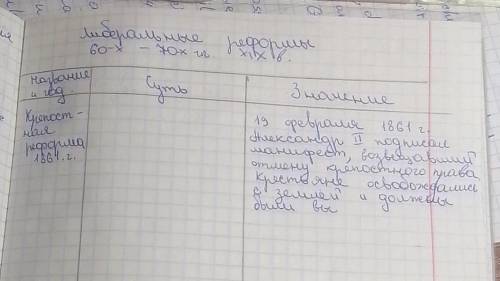 либеральные реформы
60-х - 70х гг. XIX в.
Название и год
Суть
Значение
Крепост-
ная
реформа
1861 г.
19 февраля 1861 г.
Александр II подписал
манифест, возвещавший
отмену крепостного права
Крестьяне освобождались
с землей и должны
были вы